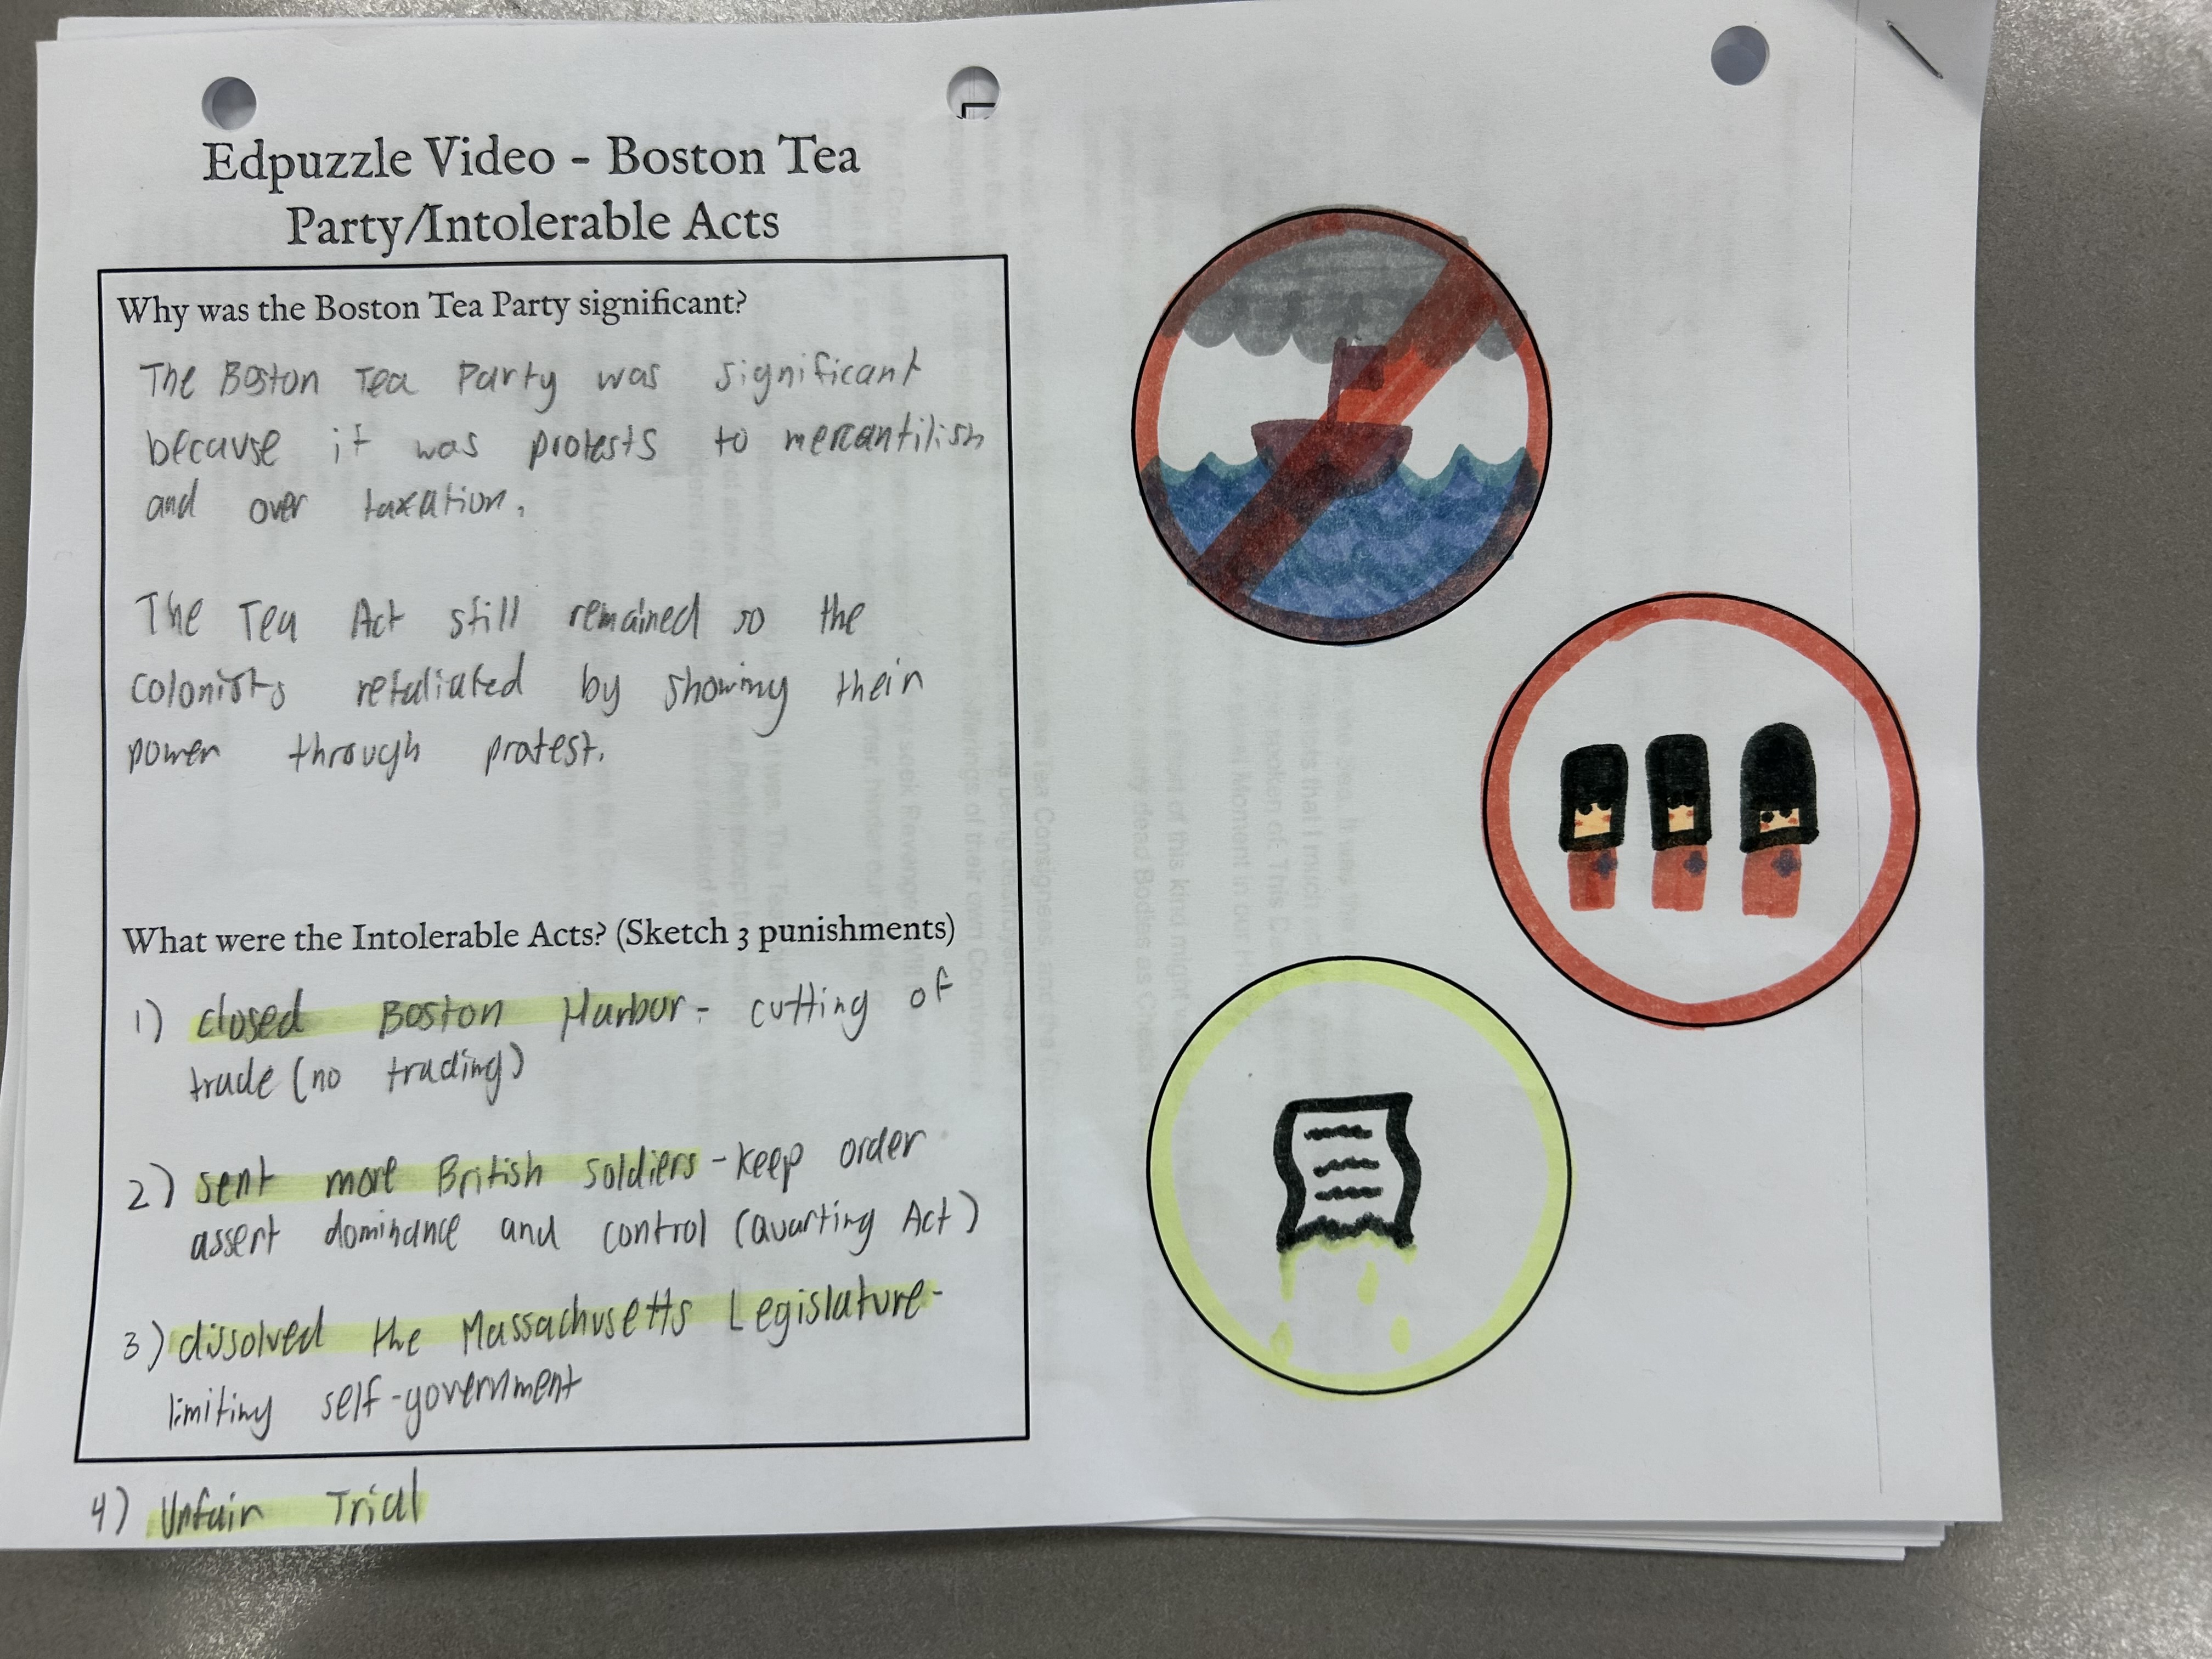 Edpuzzle Video - Boston Tea
Party/Intolerable Acts
Why was the Boston Tea Party significant?
The Boston Tea Party was significant
because it was protests to mercantilism
and over taxation.
The Tea Act still remained so the
colonists retaliated by showing their
power through protest.
What were the Intolerable Acts? (Sketch 3 punishments)
1) closed Boston Harbor - cutting of
trade (no trading)
2) sent more British soldiers - keep order
assert dominance and control (Quarting Act)
3) dissolved the Massachusetts Legislature -
limiting self-government
4) Unfair Trial